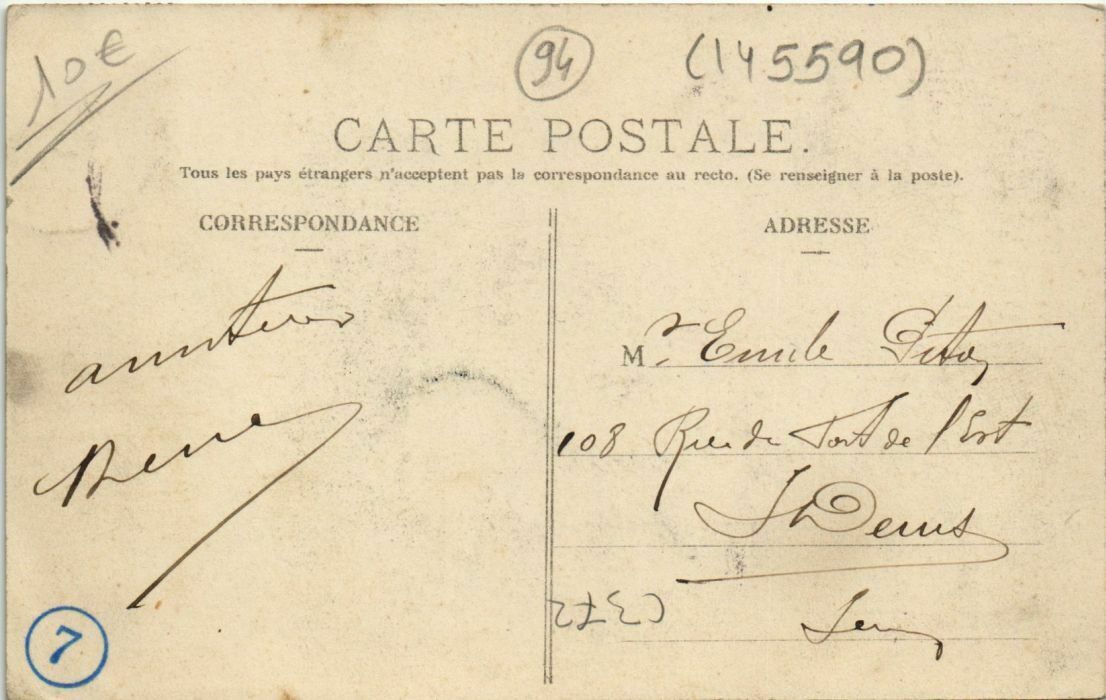 10€
94
(145590)
CARTE POSTALE.
Tous les pays étrangers n'acceptent pas la correspondance au recto. (Se renseigner à la poste).
CORRESPONDANCE
ADRESSE
René
Mr. Emile
108 Rue du Port de l'Est
St Denis
Seine
7